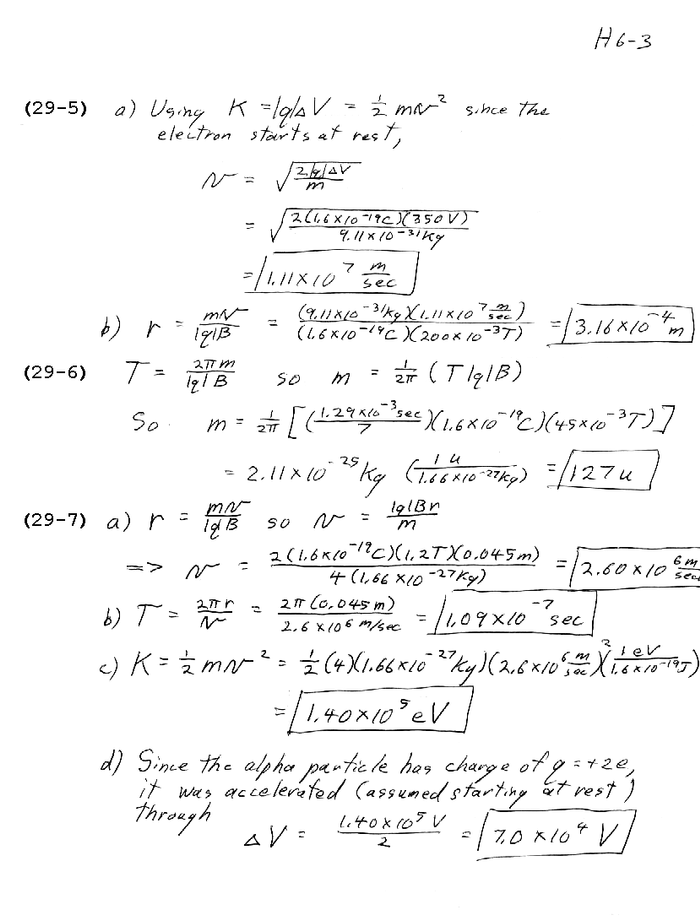 H6-3
(29-5) a) Using K = |q|ΔV = 1/2 mv² since the
electron starts at rest,
v = √(2|q|ΔV / m)
= √(2(1.6×10⁻¹⁹C)(350V) / 9.11×10⁻³¹Kg)
= 1.11×10⁷ m/sec
b) r = mv/|q|B = (9.11×10⁻³¹Kg)(1.11×10⁷ m/sec) / (1.6×10⁻¹⁹C)(200×10⁻³T) = 3.16×10⁻⁴ m
(29-6) T = 2πm/|q|B so m = 1/2π (T|q|B)
So m = 1/2π [(1.29×10⁻³sec / 7)(1.6×10⁻¹⁹C)(45×10⁻³T)]
= 2.11×10⁻²⁵Kg (1u / 1.66×10⁻²⁷Kg) = 127u
(29-7) a) r = mv/|q|B so v = |q|Br/m
=> v = 2(1.6×10⁻¹⁹C)(1.2T)(0.045m) / 4(1.66×10⁻²⁷Kg) = 2.60×10⁶ m/sec
b) T = 2πr/v = 2π(0.045m) / 2.6×10⁶ m/sec = 1.09×10⁻⁷ sec
c) K = 1/2 mv² = 1/2 (4)(1.66×10⁻²⁷Kg)(2.6×10⁶ m/sec)² (1eV / 1.6×10⁻¹⁹J)
= 1.40×10⁵ eV
d) Since the alpha particle has charge of q = +2e,
it was accelerated (assumed starting at rest)
through
ΔV = 1.40×10⁵ V / 2 = 7.0×10⁴ V